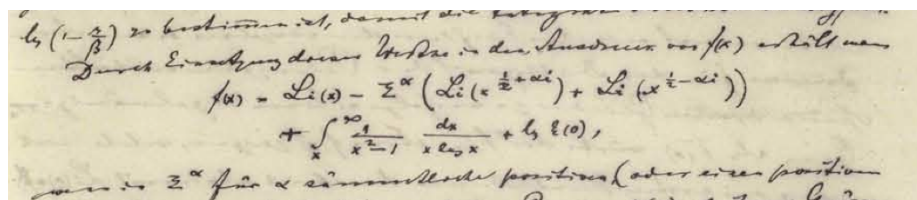 lg (1 − z/β) zu bestimmen ist, damit die Integration
Durch Einsetzung dieser Werthe in den Ausdruck von f(x) erhält man
f(x) = Li(x) − Σ^α (Li(x^{½+αi}) + Li(x^{½−αi}))
+ ∫_x^∞ 1/(x²−1) dx/(x log x) + lg ξ(0),
wenn in Σ^α für α sämmtliche positiven (oder einen positiven